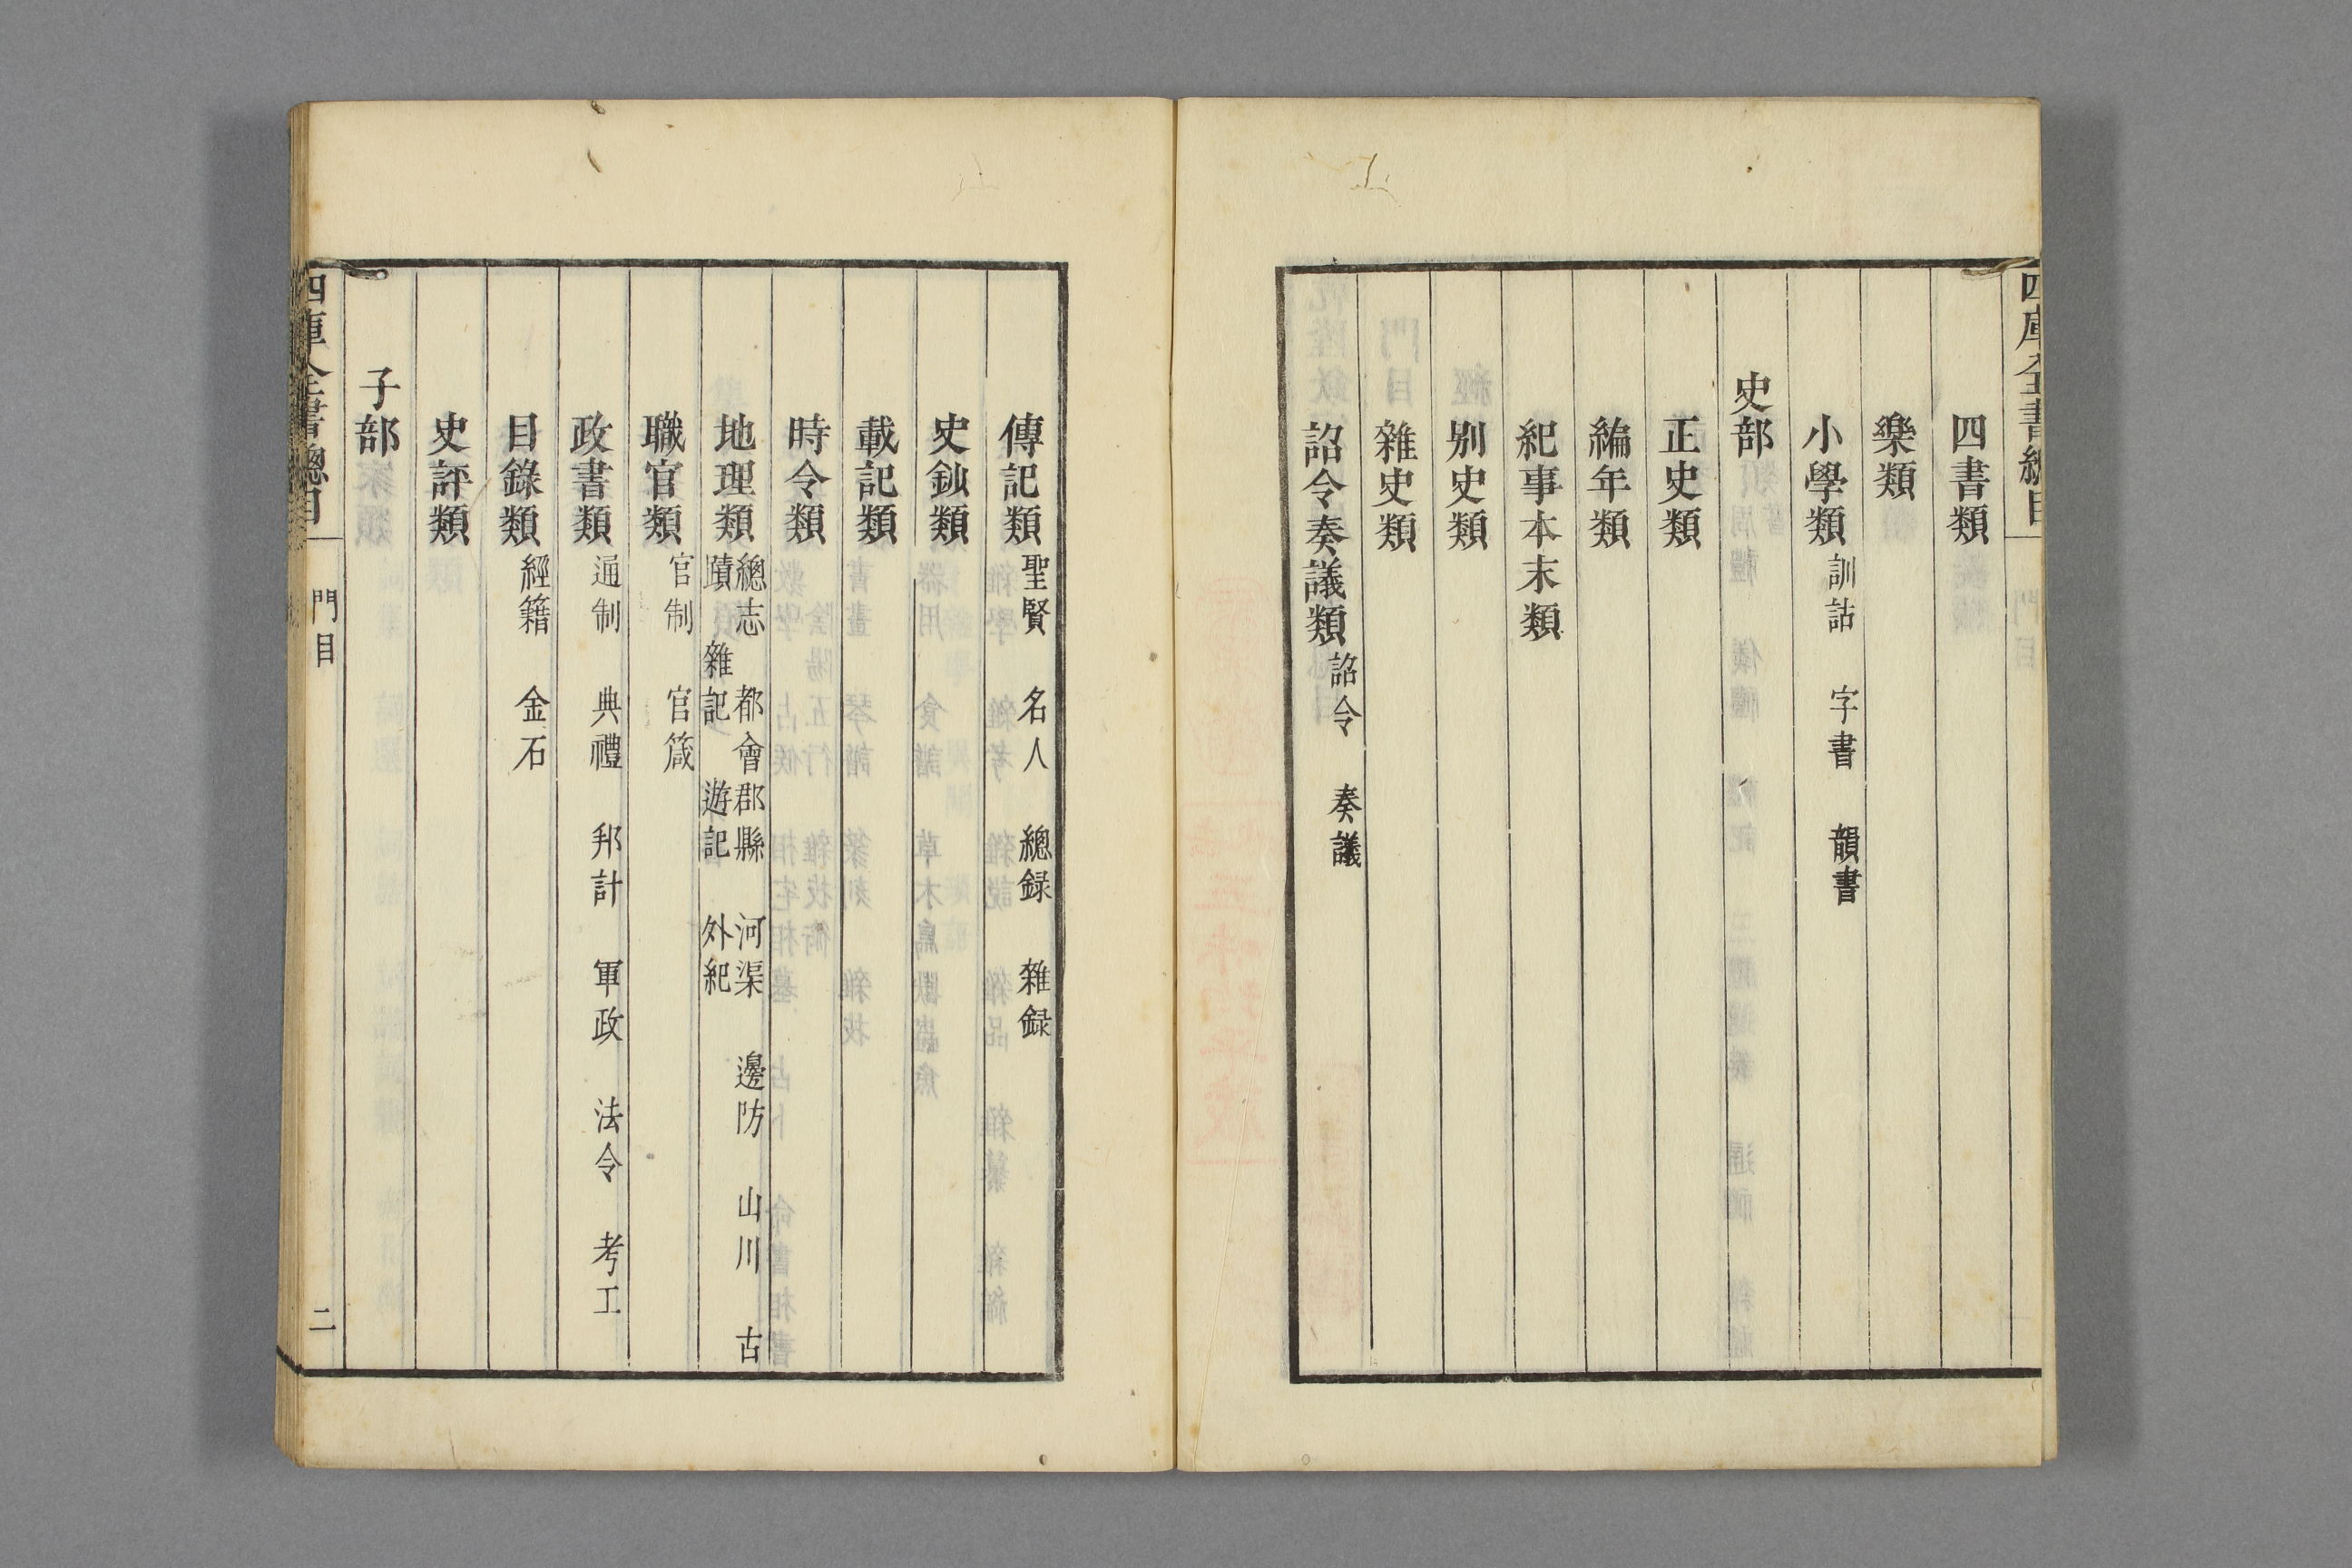 四庫全書總目
四書類
樂類
小學類 訓詁 字書 韻書
史部
正史類
編年類
紀事本末類
別史類
雜史類
詔令奏議類 詔令 奏議
傳記類 聖賢 名人 總録 雜録
史鈔類
載記類
時令類
地理類 總志 都會郡縣 河渠 邊防 山川 古
蹟 雜記 遊記 外紀
職官類 官制 官箴
政書類 通制 典禮 邦計 軍政 法令 考工
目錄類 經籍 金石
史評類
子部
四庫全書總目 門目 二